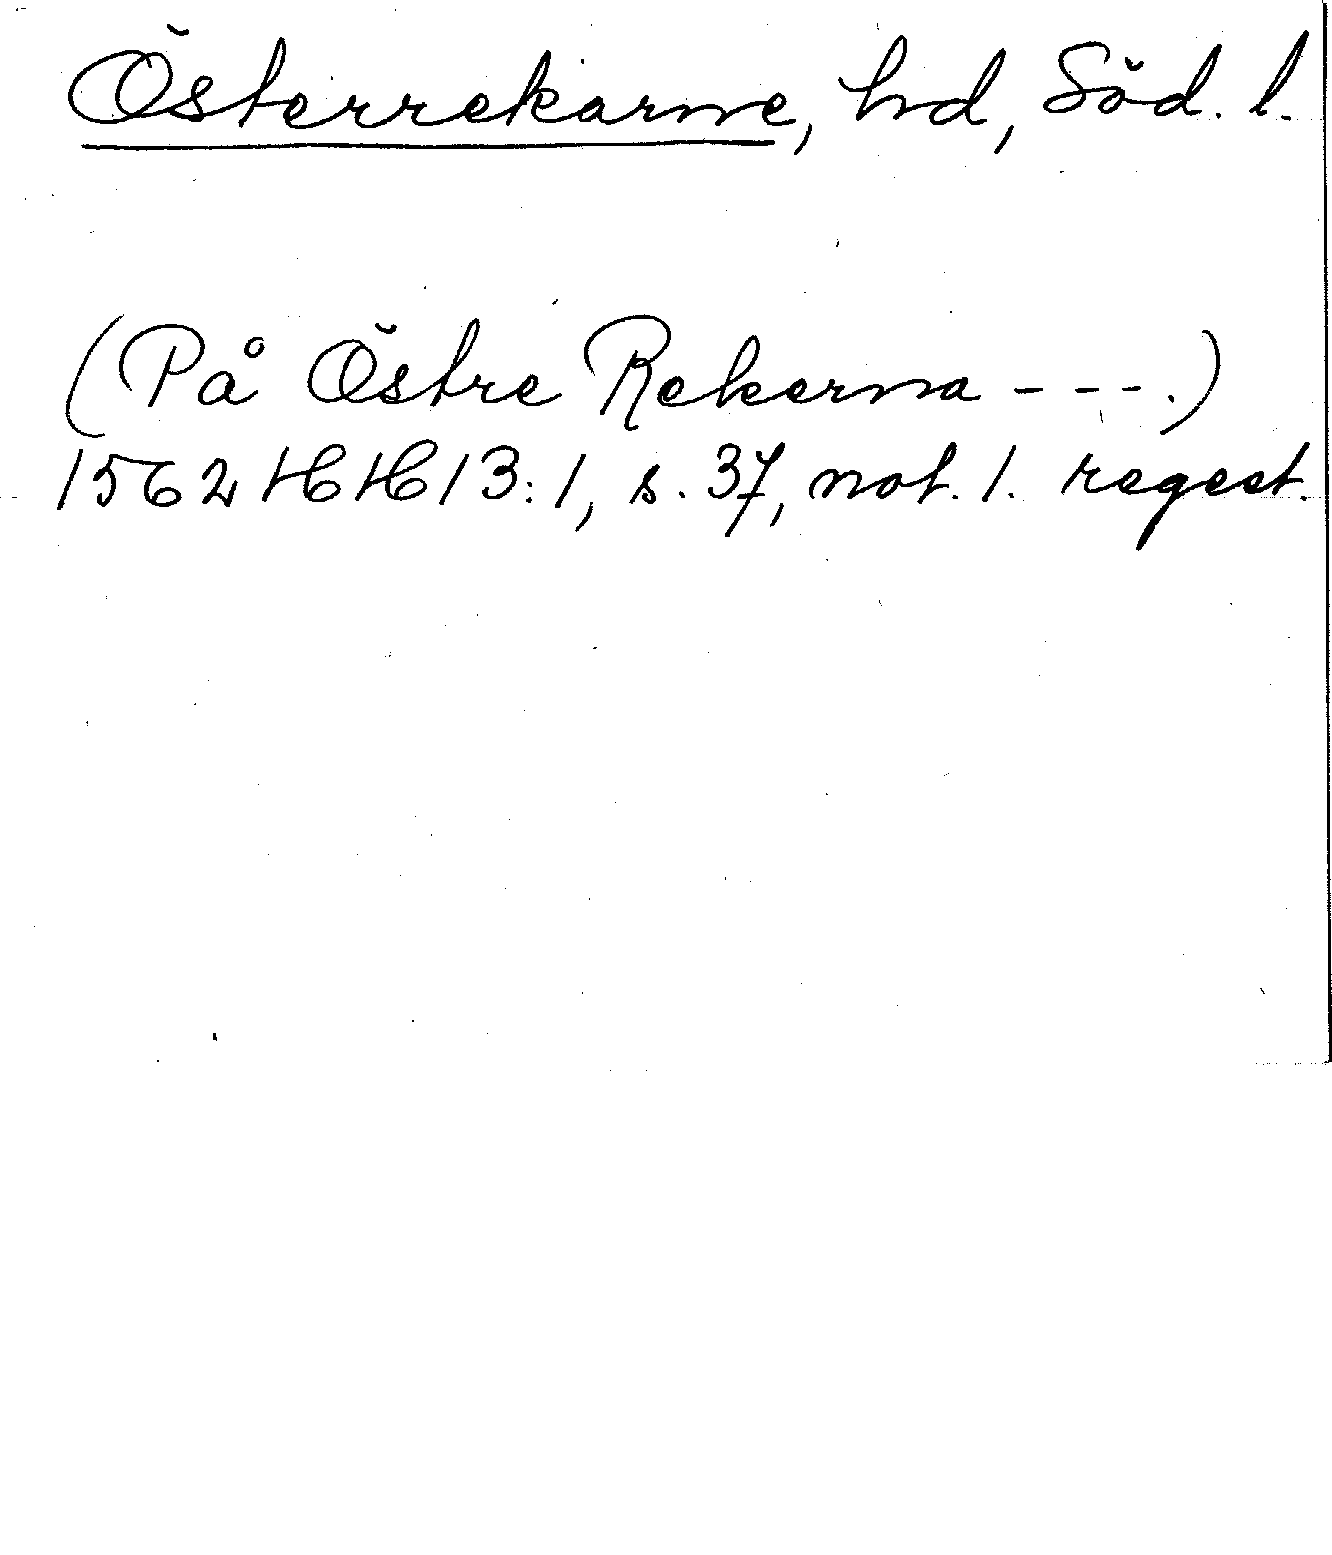 Österrekarne, hd, Söd. l.
(På Östre Rekerna - - - .)
1562 HH 13:1, s. 37, not. 1. regest.